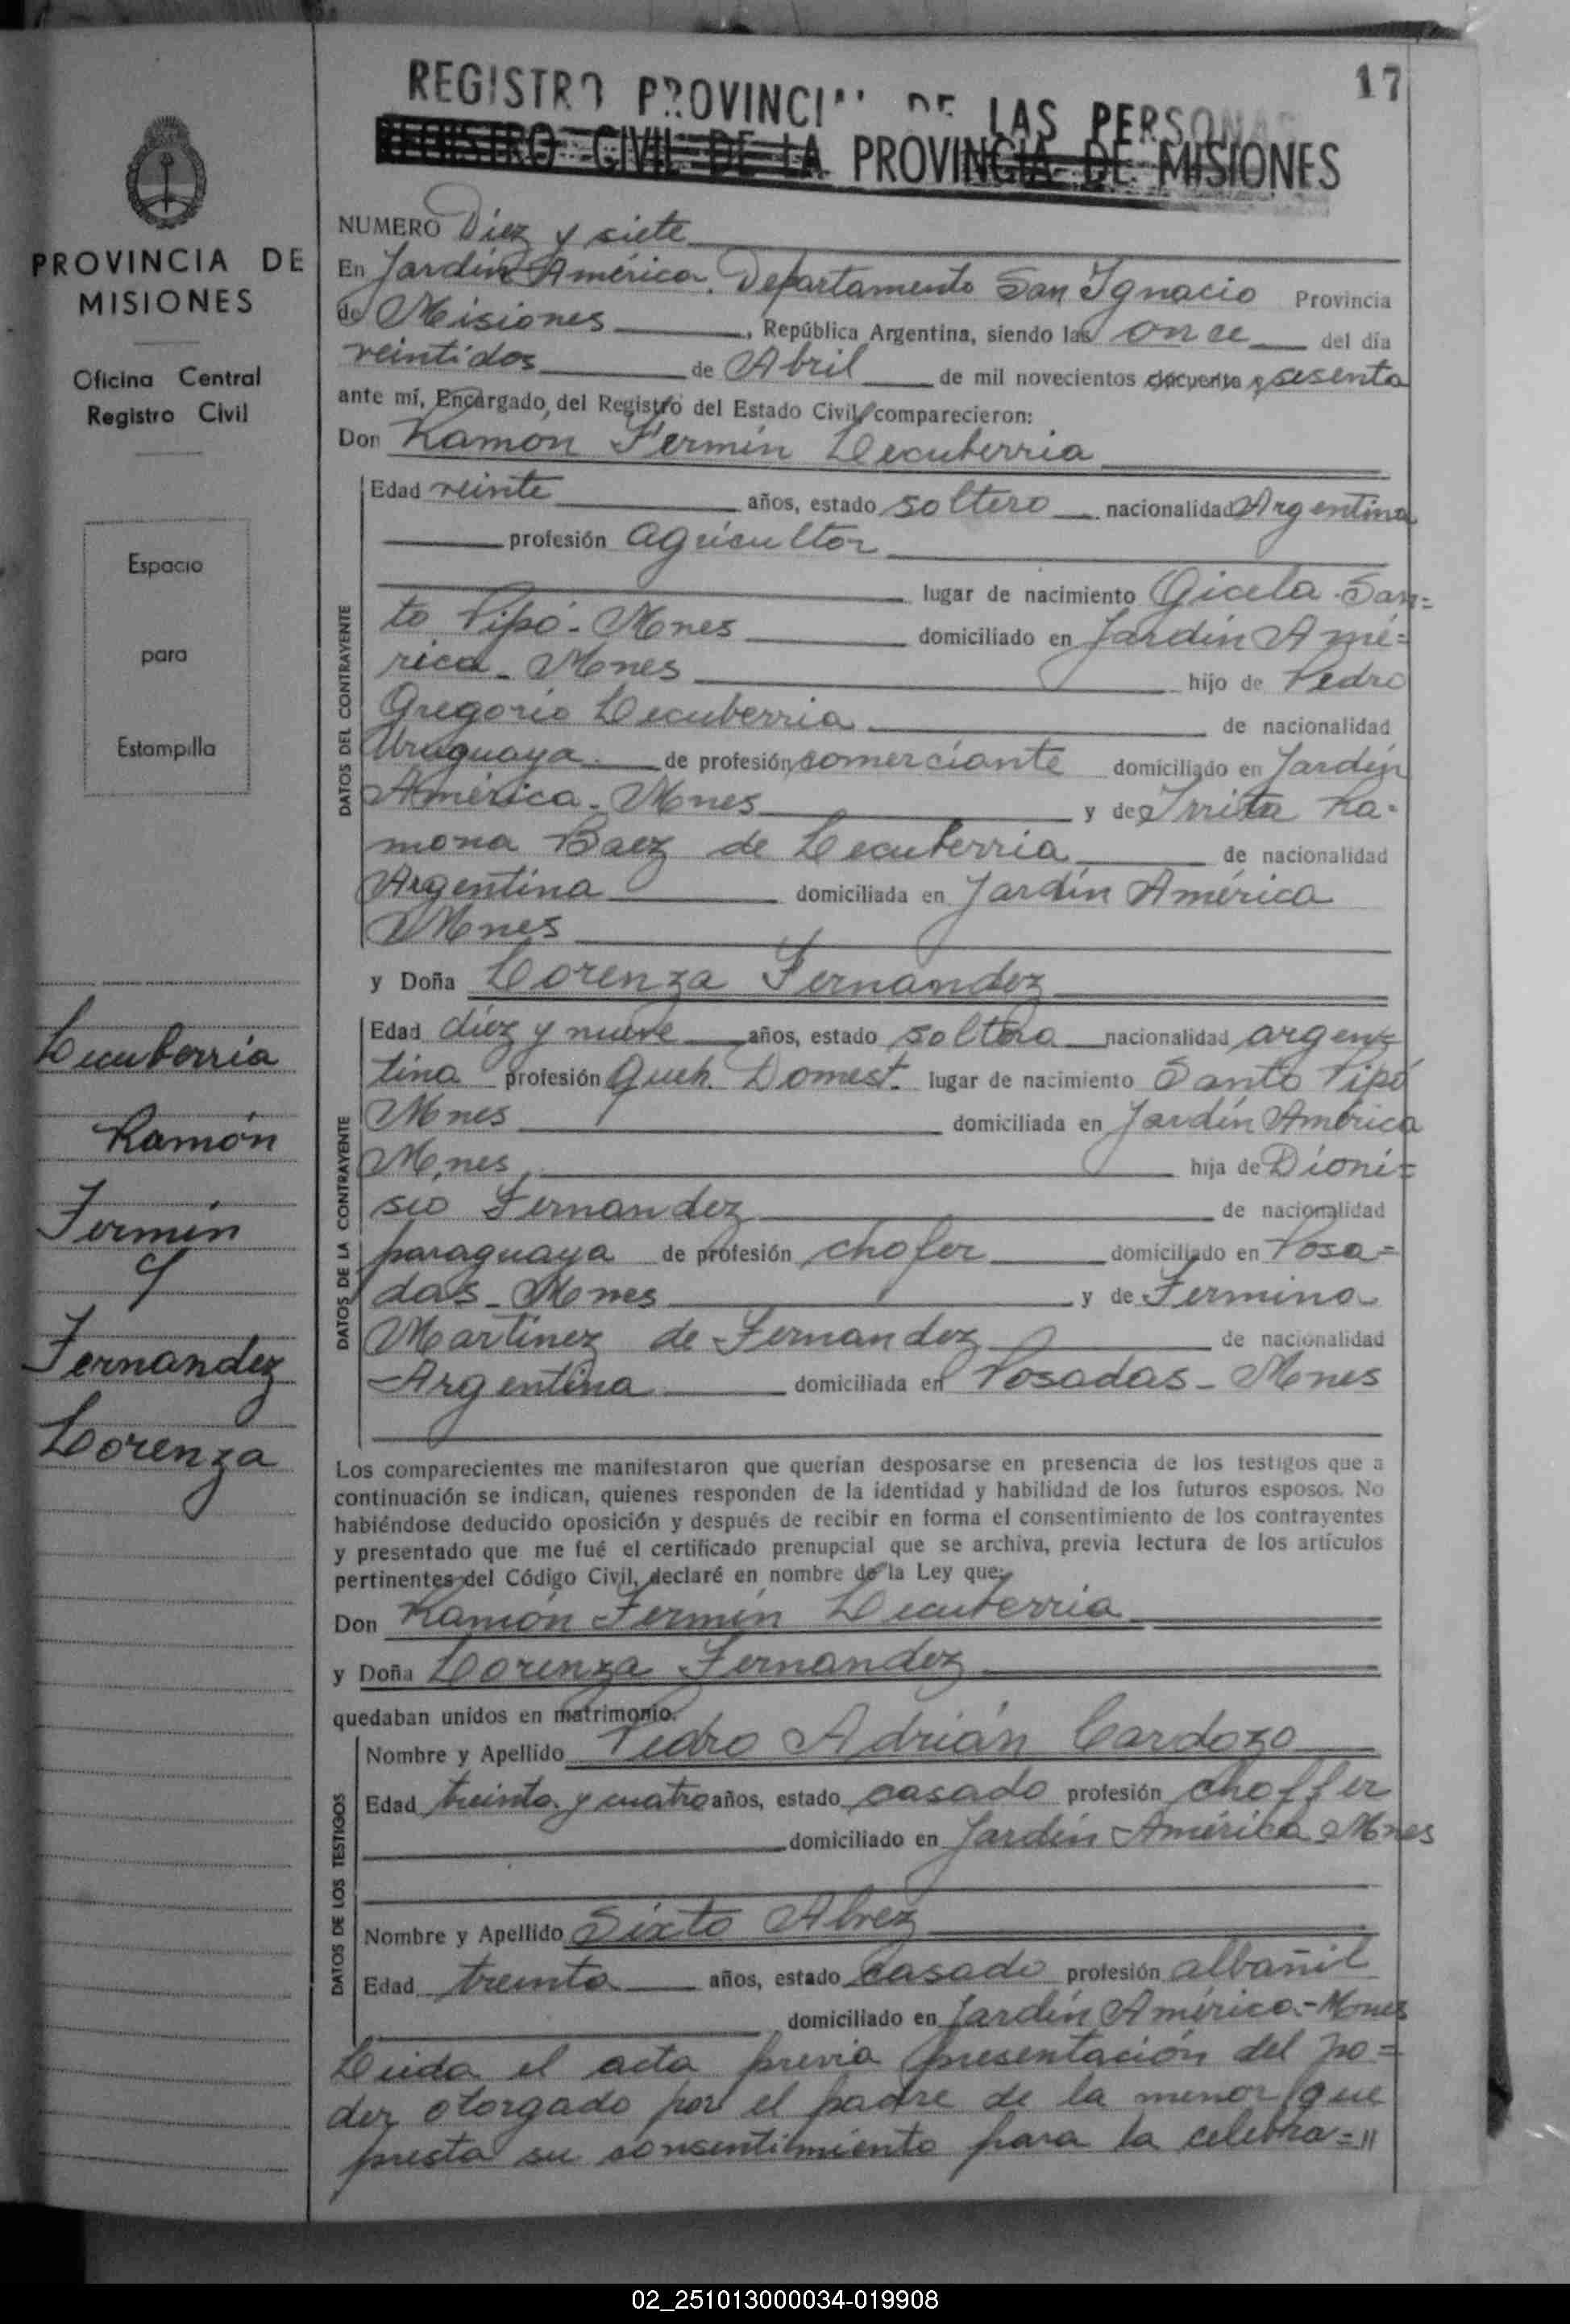 17
REGISTRO PROVINCIAL DE LAS PERSONAS
REGISTRO CIVIL DE LA PROVINCIA DE MISIONES
PROVINCIA DE
MISIONES
Oficina Central
Registro Civil
Espacio
para
Estampilla
Lecuberria
Ramón
Fermín
y
Fernandez
Lorenza
NUMERO Diez y siete
En Jardín América. Departamento San Ignacio Provincia
de Misiones, República Argentina, siendo las once del día
veintidos de Abril de mil novecientos cincuenta y sesenta
ante mí, Encargado del Registro del Estado Civil, comparecieron:
Don Ramón Fermín Lecuberria
DATOS DEL CONTRAYENTE
Edad veinte años, estado soltero nacionalidad Argentina
profesión agricultor
lugar de nacimiento Gicela - San=
to Pipó - Mnes domiciliado en Jardín Amé=
rica - Mnes hijo de Pedro
Gregorio Lecuberria de nacionalidad
Uruguaya de profesión comerciante domiciliado en Jardín
América - Mnes y de Irrita Ra=
mona Baez de Lecuberria de nacionalidad
Argentina domiciliada en Jardín América
Mnes
y Doña Lorenza Fernández
DATOS DE LA CONTRAYENTE
Edad diez y nueve años, estado soltera nacionalidad argen=
tina profesión Queh. Domest. lugar de nacimiento Santo Pipó
Mnes domiciliada en Jardín América
Mnes hija de Dioni=
sio Fernandez de nacionalidad
paraguaya de profesión chofer domiciliado en Posa=
das - Mnes y de Fermina
Martínez de Fernandez de nacionalidad
Argentina domiciliada en Posadas - Mnes
Los comparecientes me manifestaron que querían desposarse en presencia de los testigos que a
continuación se indican, quienes responden de la identidad y habilidad de los futuros esposos. No
habiéndose deducido oposición y después de recibir en forma el consentimiento de los contrayentes
y presentado que me fué el certificado prenupcial que se archiva, previa lectura de los artículos
pertinentes del Código Civil, declaré en nombre de la Ley que:
Don Ramón Fermín Lecuberria
y Doña Lorenza Fernandez
quedaban unidos en matrimonio.
DATOS DE LOS TESTIGOS
Nombre y Apellido Pedro Adrián Cardozo
Edad treinta y cuatro años, estado casado profesión choffer
domiciliado en Jardín América Mnes
Nombre y Apellido Sixto Alvez
Edad treinta años, estado Casado profesión albañil
domiciliado en Jardín América.- Mnes
Leida el acta previa presentación del po=
der otorgado por el padre de la menor que
presta su consentimiento para la celebra="
02_251013000034-019908